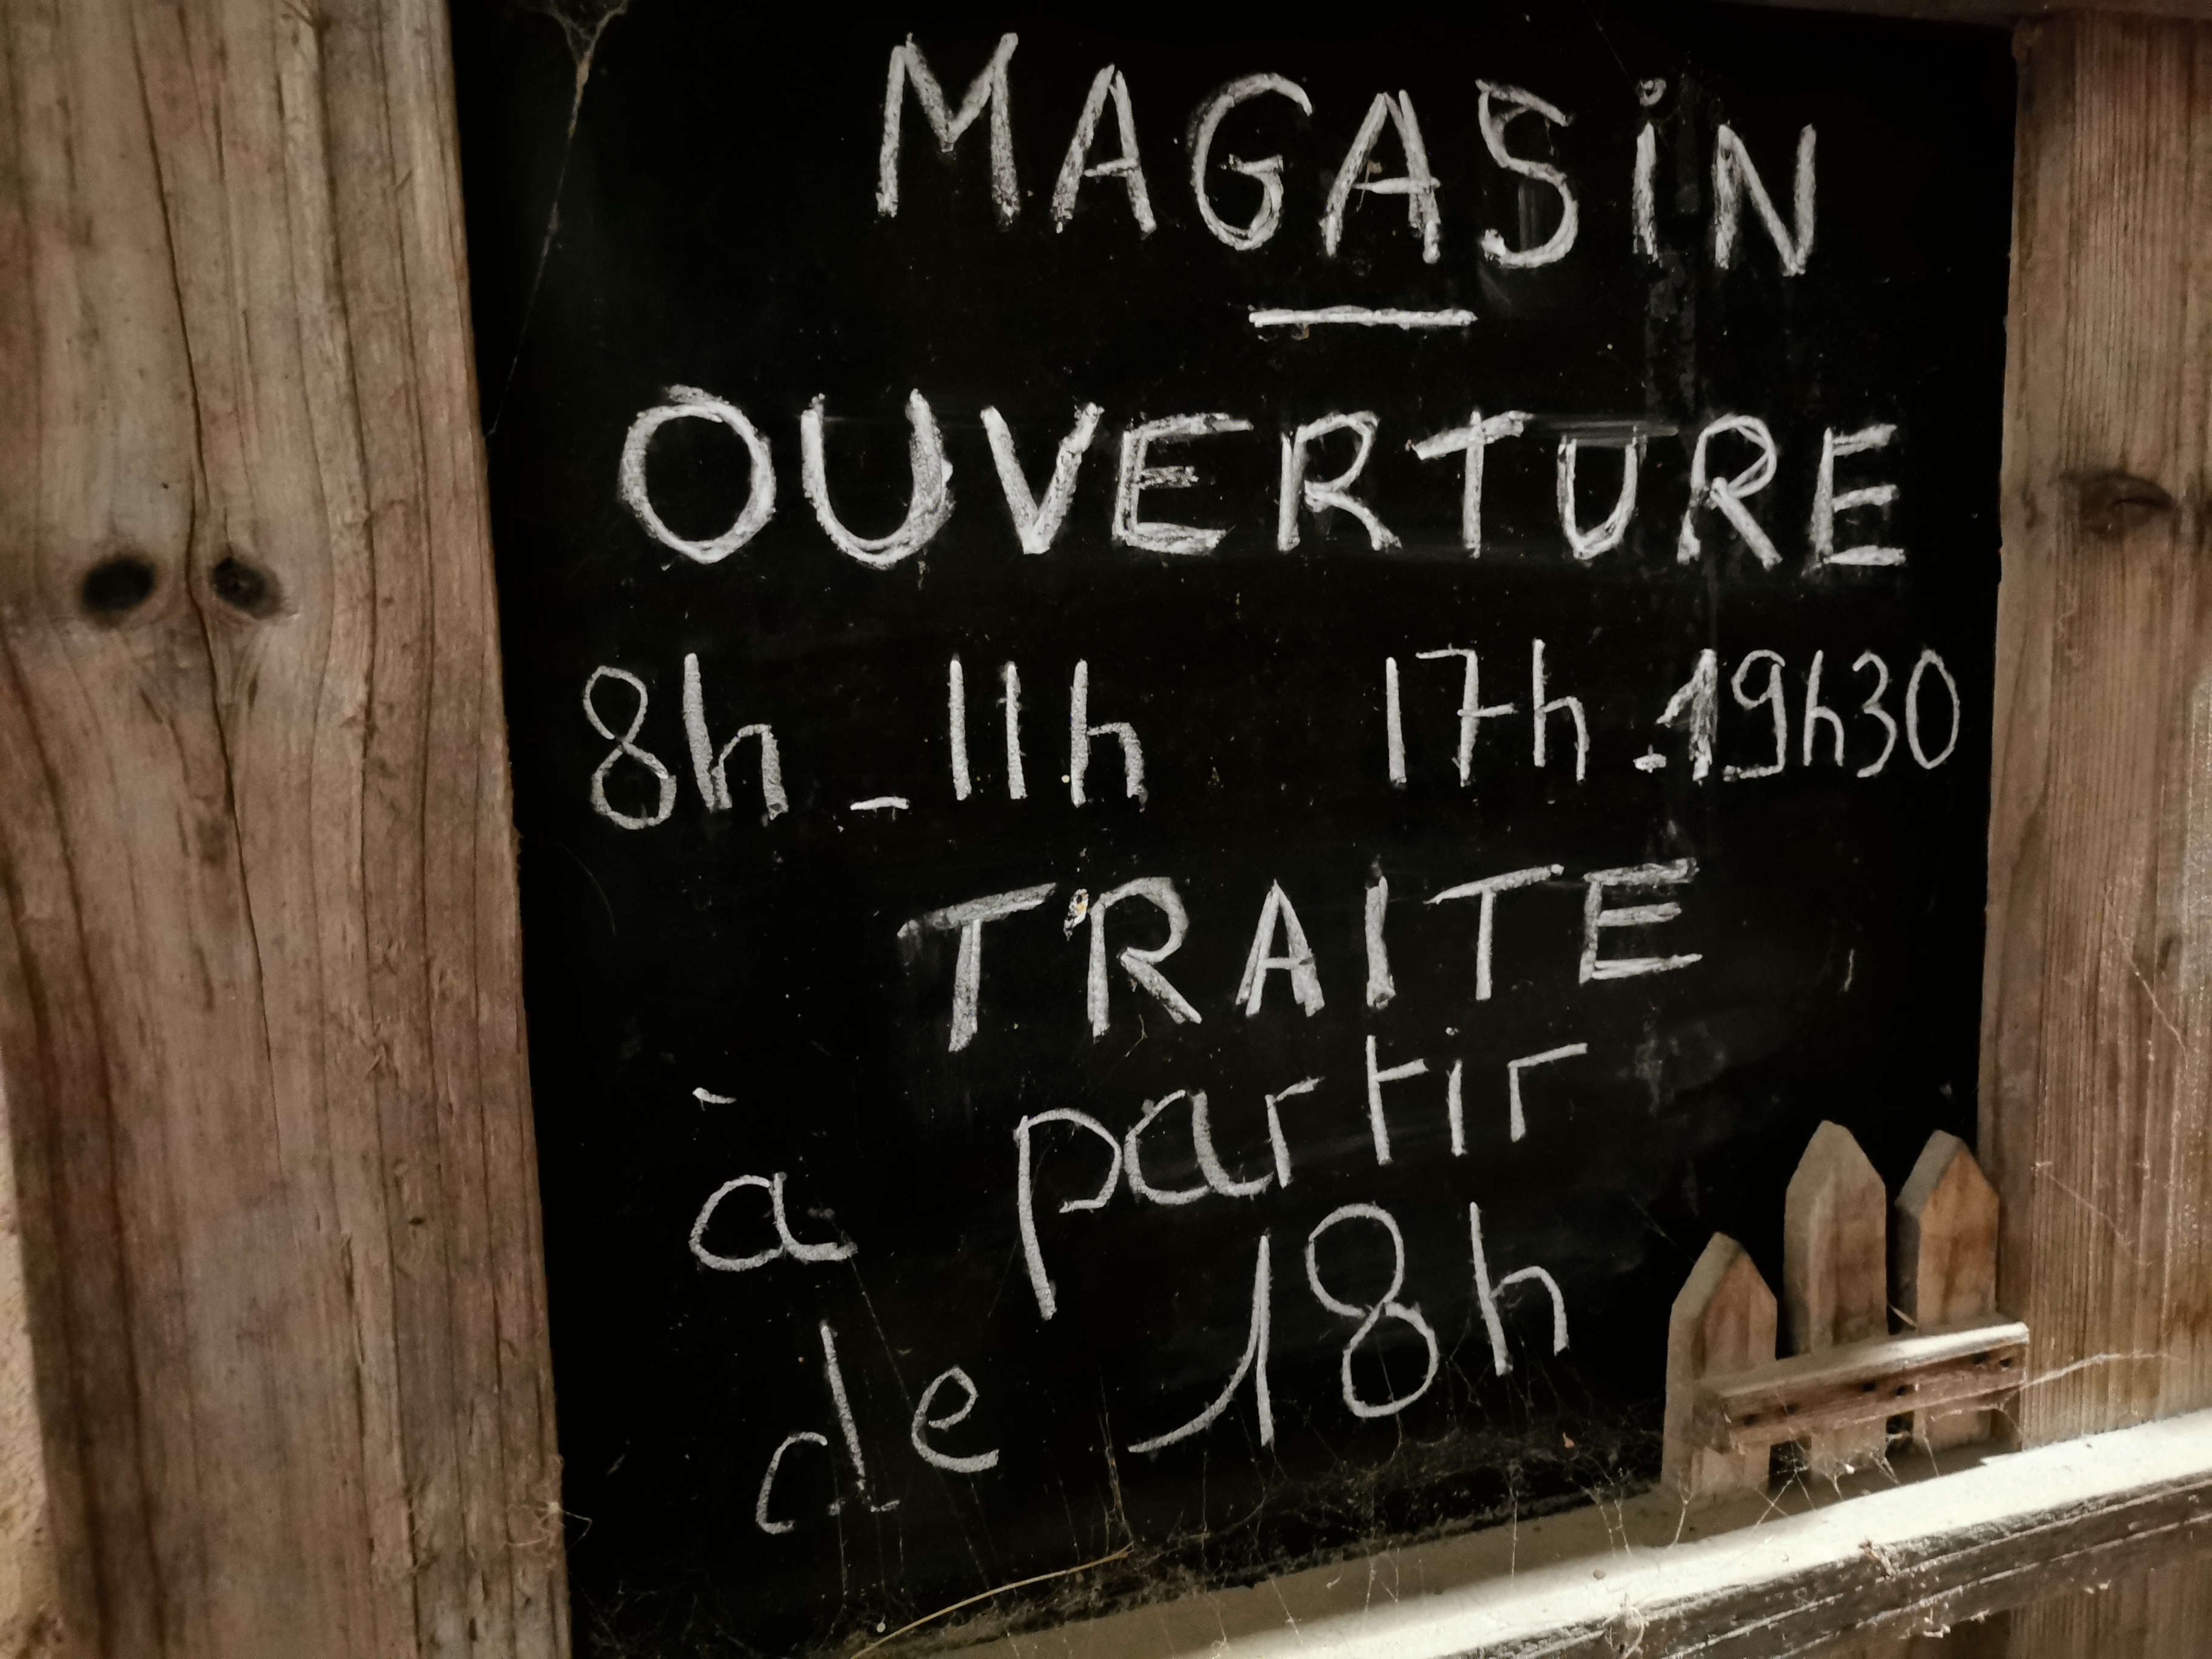 MAGASiN
OUVERTURE
8h_11h 17h-19h30
TRAITE
à partir
de 18h